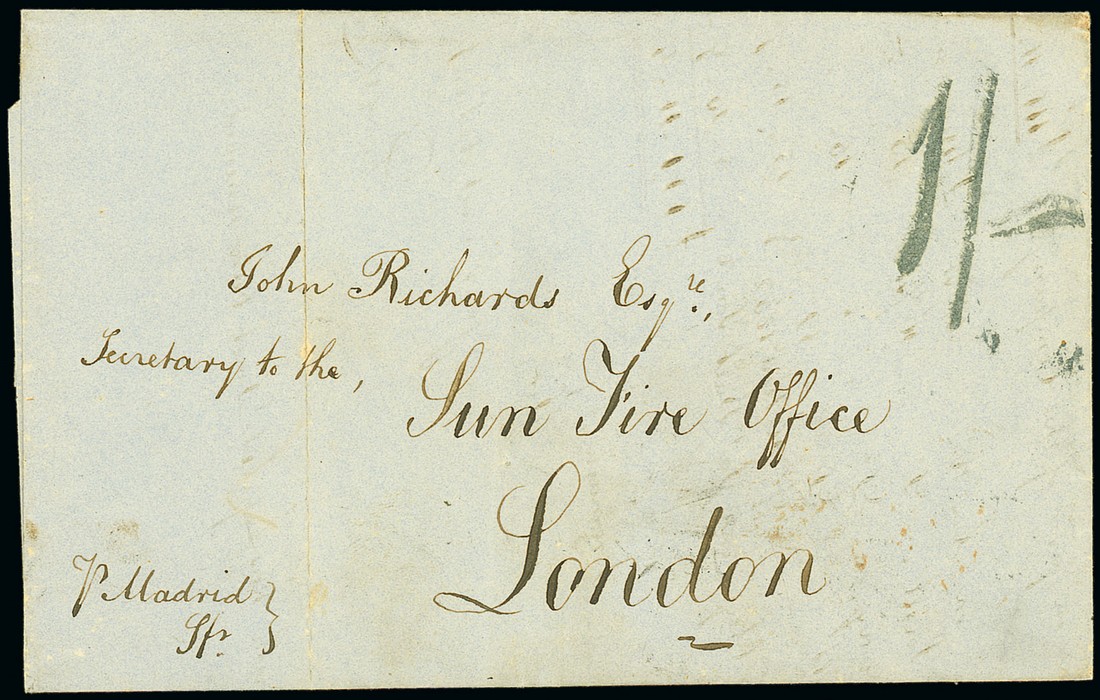 1/-
John Richards Esqre.,
Secretary to the,
Sun Fire Office
London
p Madrid
Sfr